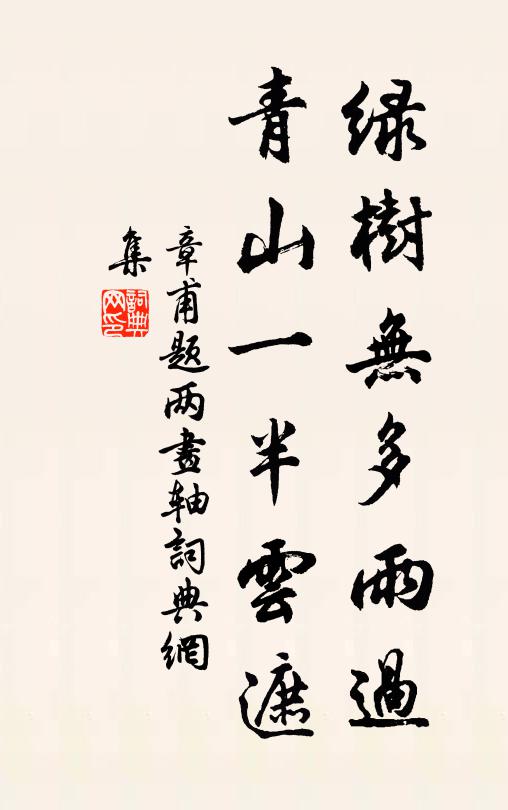 绿樹無多雨過
青山一半雲遮
章甫题两畫軸詞典網
集
詞典
网印